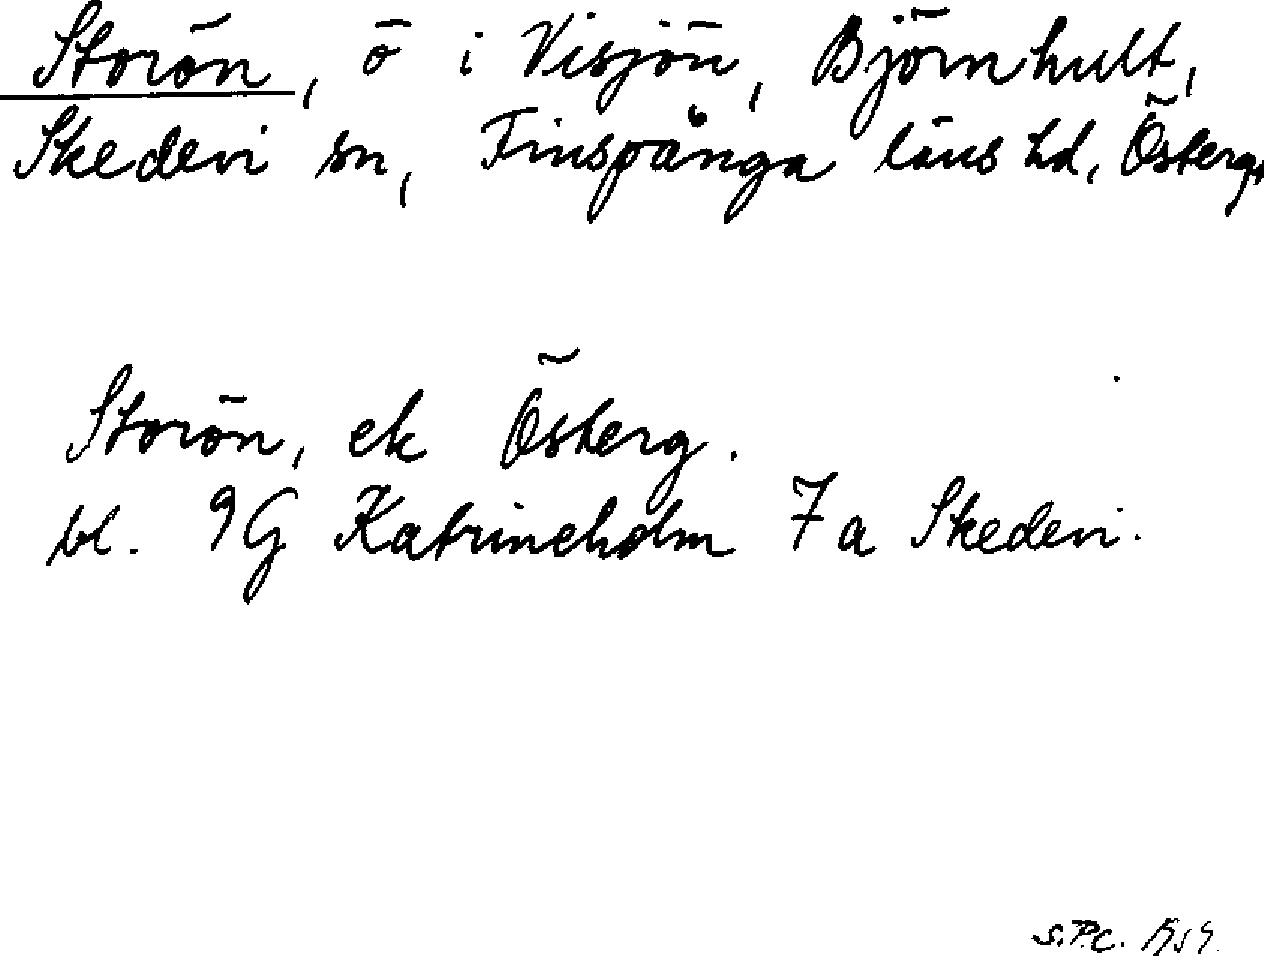 Storön, ö i Visjön, Björnhult,
Skedevi sn, Finspånga läns hd, Österg.
Storön, ek Österg.
bl. 9G Katrineholm 7a Skedevi.
S.P.C.